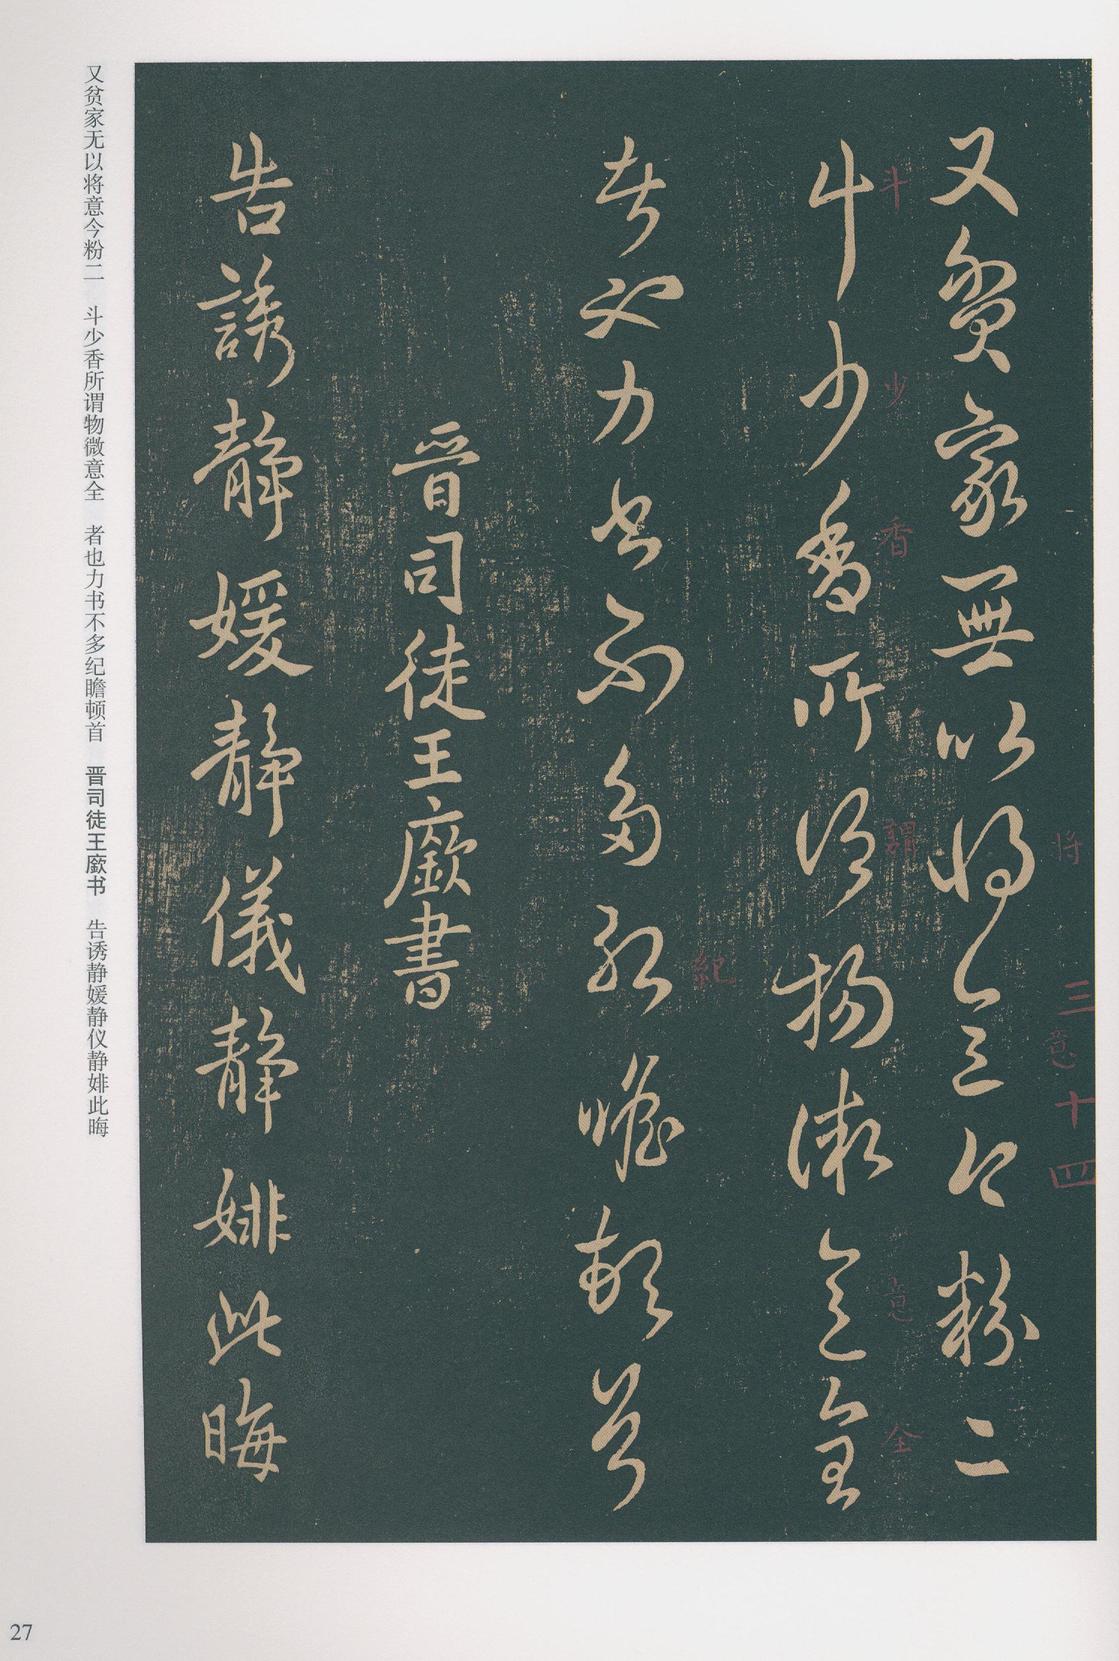 又貧家無以將意今粉二
斗少香所謂物微意全
者也力書不多紀瞻頓首
晉司徒王廞書
告誘靜媛靜儀靜婔此晦
斗
少
香
謂
意
全
將
三
意
十四
紀
又贫家无以将意今粉二　斗少香所谓物微意全　者也力书不多纪瞻顿首　晋司徒王廞书　告诱静媛静仪静婔此晦
27